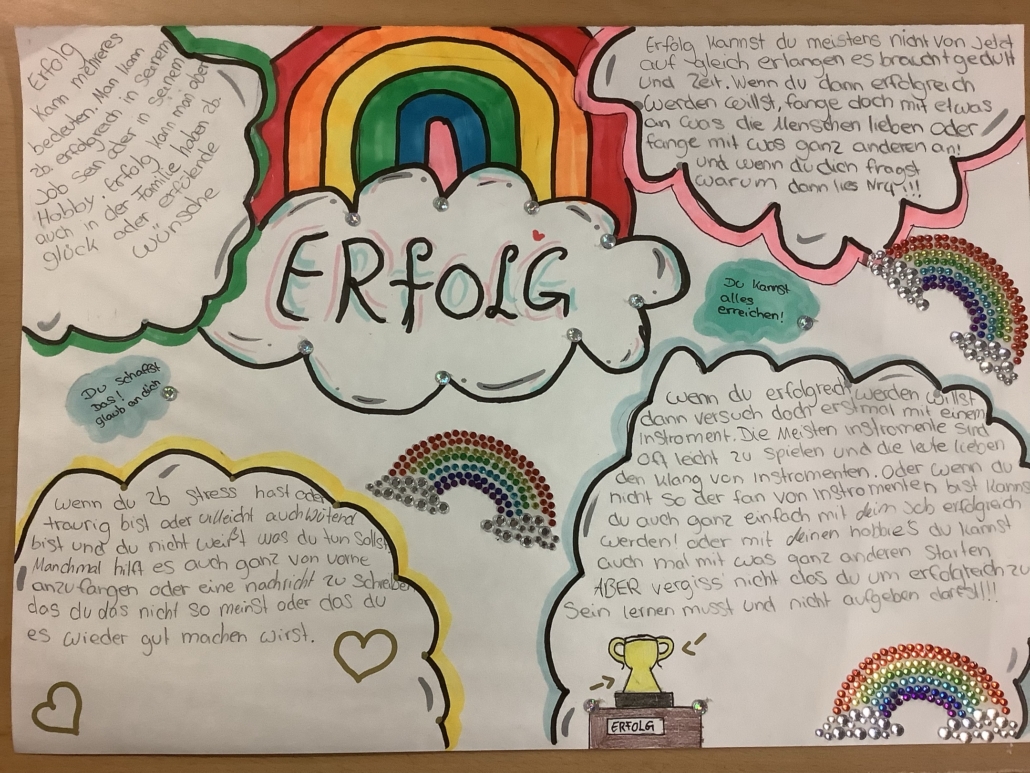 Erfolg
kann mehreres
bedeuten. Man kann
zb. erfolgreich in seinem
Job sein oder in seinem
Hobby. Erfolg kann man aber
auch in der Familie haben zb.
glück oder erfölende
wünsche
ERfOLG
Erfolg kannst du meistens nicht von jetzt
auf gleich erlangen es braucht gedult
und Zeit. Wenn du dann erfolgreich
werden willst, fange doch mit etwas
an was die Menschen lieben oder
fange mit was ganz anderen an!
und wenn du dich fragst
warum dann lies Nr.4!!!
Du kannst
alles
erreichen!
Du schaffst
Das!
glaub an dich
wenn du zb stress hast oder
traurig bist oder villeicht auch wütend
bist und du nicht weißt was du tun sollst.
Manchmal hilft es auch ganz von vorne
anzufangen oder eine nachricht zu schreiben
das du das nicht so meinst oder das du
es wieder gut machen wirst.
Wenn du erfolgreich werden willst
dann versuch doch erstmal mit einem
Instroment. Die Meisten instromente sind
oft leicht zu spielen und die leute lieben
den klang von Instromenten. Oder wenn du
nicht so der fan von Instromenten bist kannst
du auch ganz einfach mit dein Job erfolgreich
werden! oder mit deinen hobbie's du kannst
auch mal mit was ganz anderen starten
ABER vergiss nicht das du um erfolgreich zu
Sein lernen musst und nicht aufgeben darfst!!!
ERfOLG